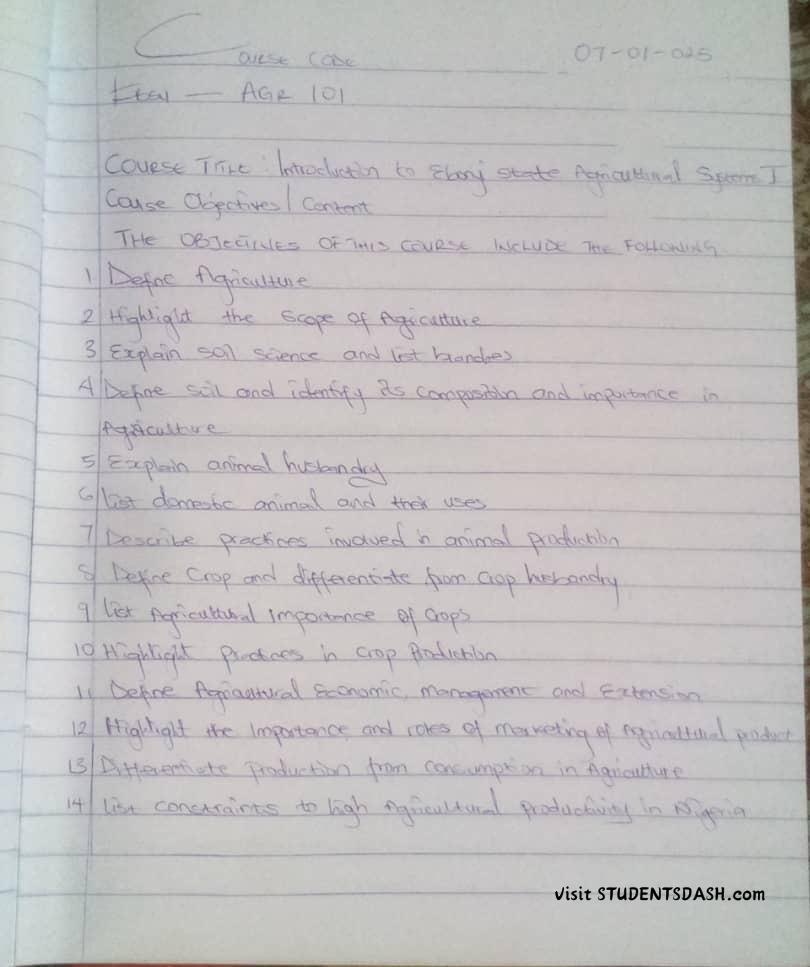 Course Code 07-01-025
AGR 101
Course Title: Introduction to Ebonyi State Agricultural System I
Couse Objectives/Content
THE OBJECTIVES OF THIS COURSE INCLUDE THE FOLLOWING
1 Define Agriculture
2 Highlight the Scope of Agriculture
3 Explain soil science and list branches
4 Define soil and identify its composition and importance in
Agriculture
5 Explain animal husbandry
6 List domestic animal and their uses
7 Describe practices involved in animal production
8 Define Crop and differentiate from Crop husbandry
9 List Agricultural importance of crops
10 Highlight practices in crop production
11 Define Agricultural Economic, management and Extension
12 Highlight the importance and roles of marketing of agricultural product
13 Differentiate production from consumption in Agriculture
14 List constraints to high Agricultural productivity in Nigeria
Visit STUDENTSDASH.com